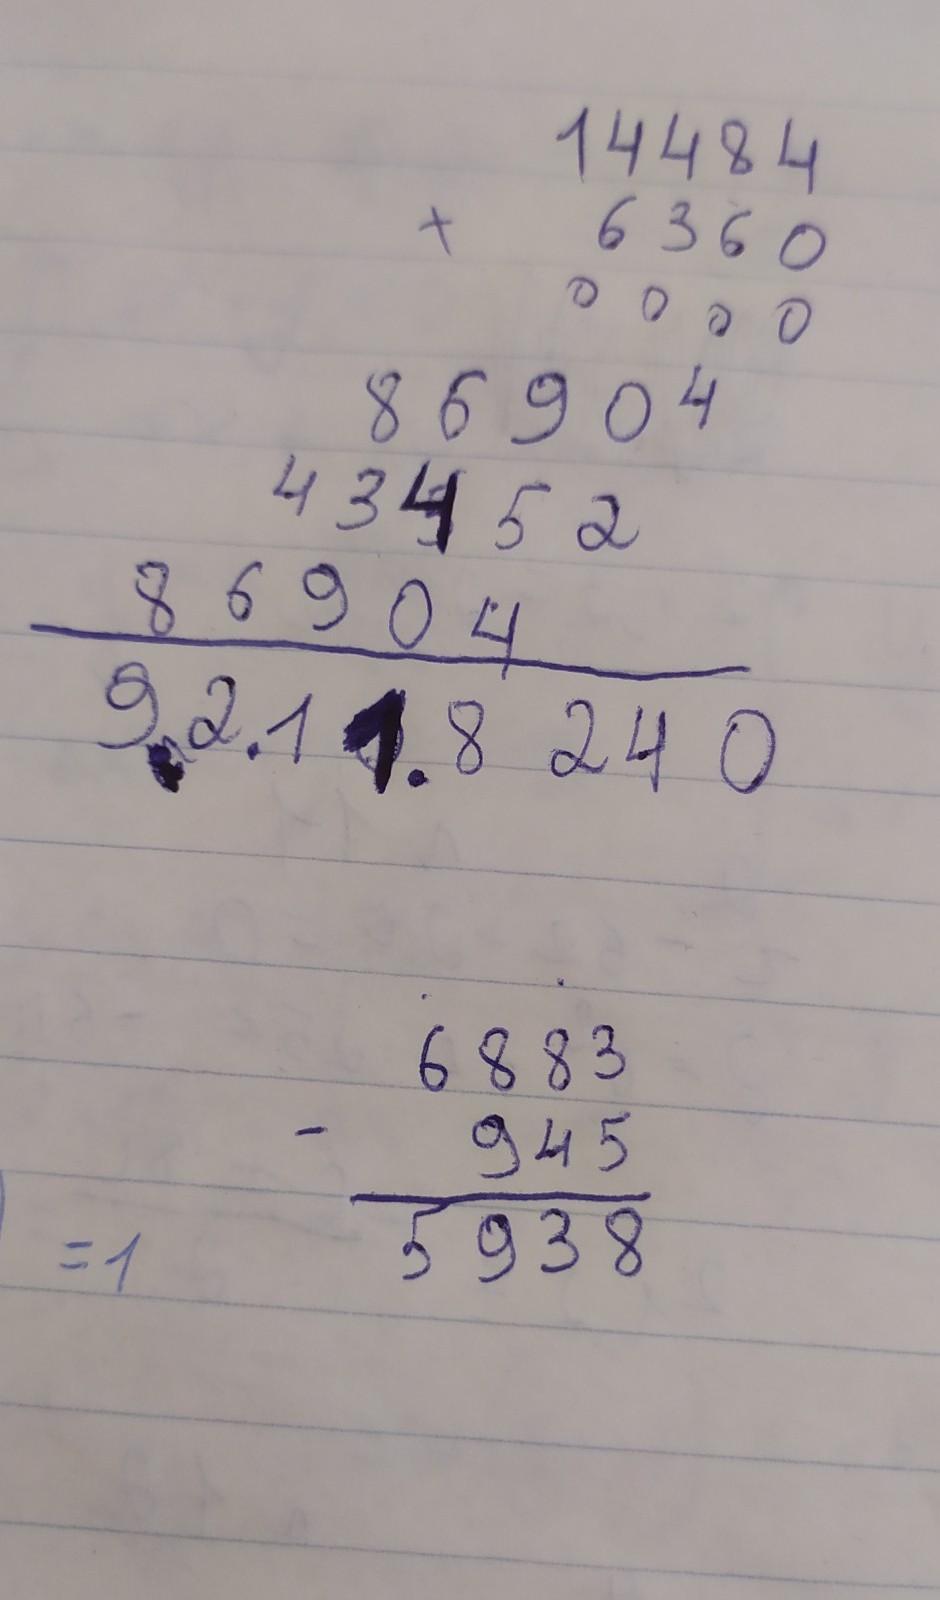 14484
× 6360
0000
86904
43452
86904
9.2.11.8240
6883
- 945
5938
=1